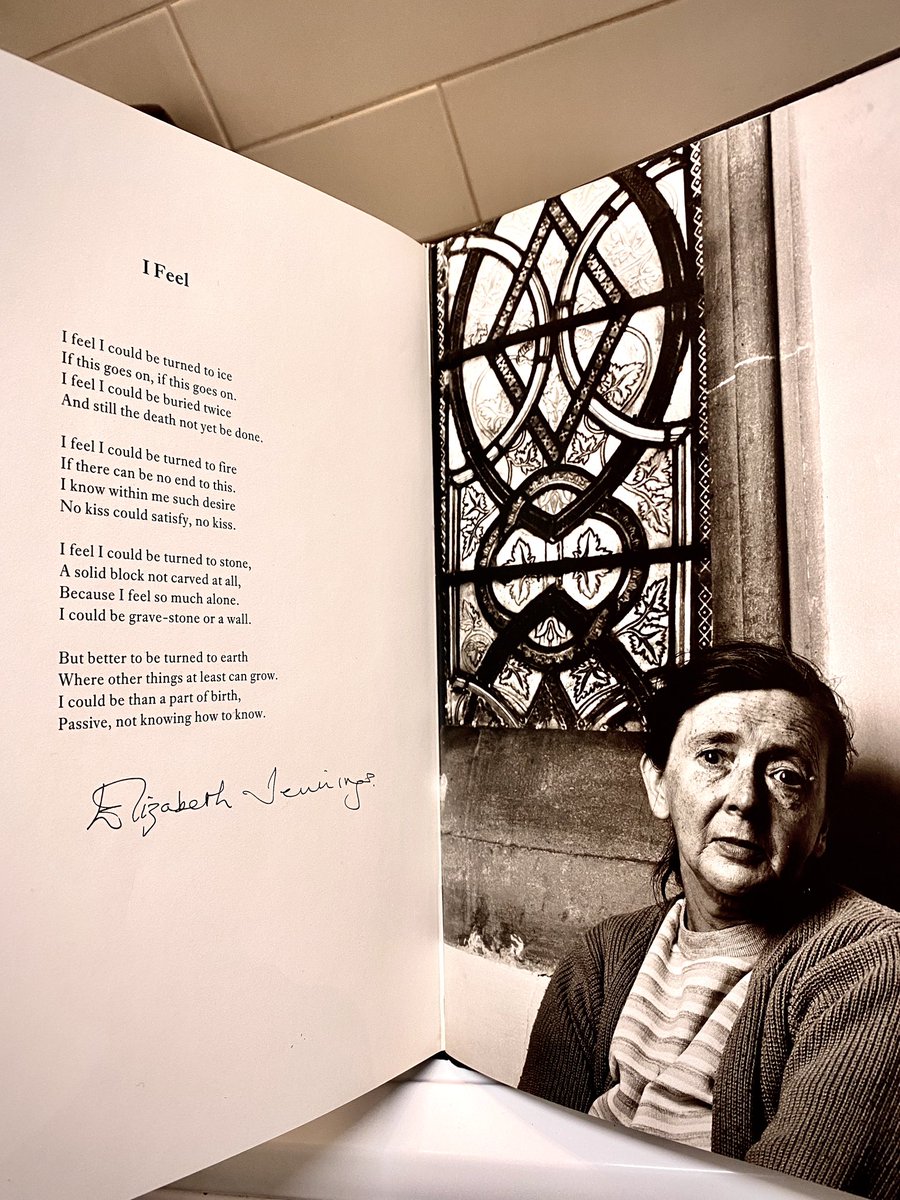 I Feel
I feel I could be turned to ice
If this goes on, if this goes on.
I feel I could be buried twice
And still the death not yet be done.
I feel I could be turned to fire
If there can be no end to this.
I know within me such desire
No kiss could satisfy, no kiss.
I feel I could be turned to stone,
A solid block not carved at all,
Because I feel so much alone.
I could be grave-stone or a wall.
But better to be turned to earth
Where other things at least can grow.
I could be than a part of birth,
Passive, not knowing how to know.
Elizabeth Jennings.